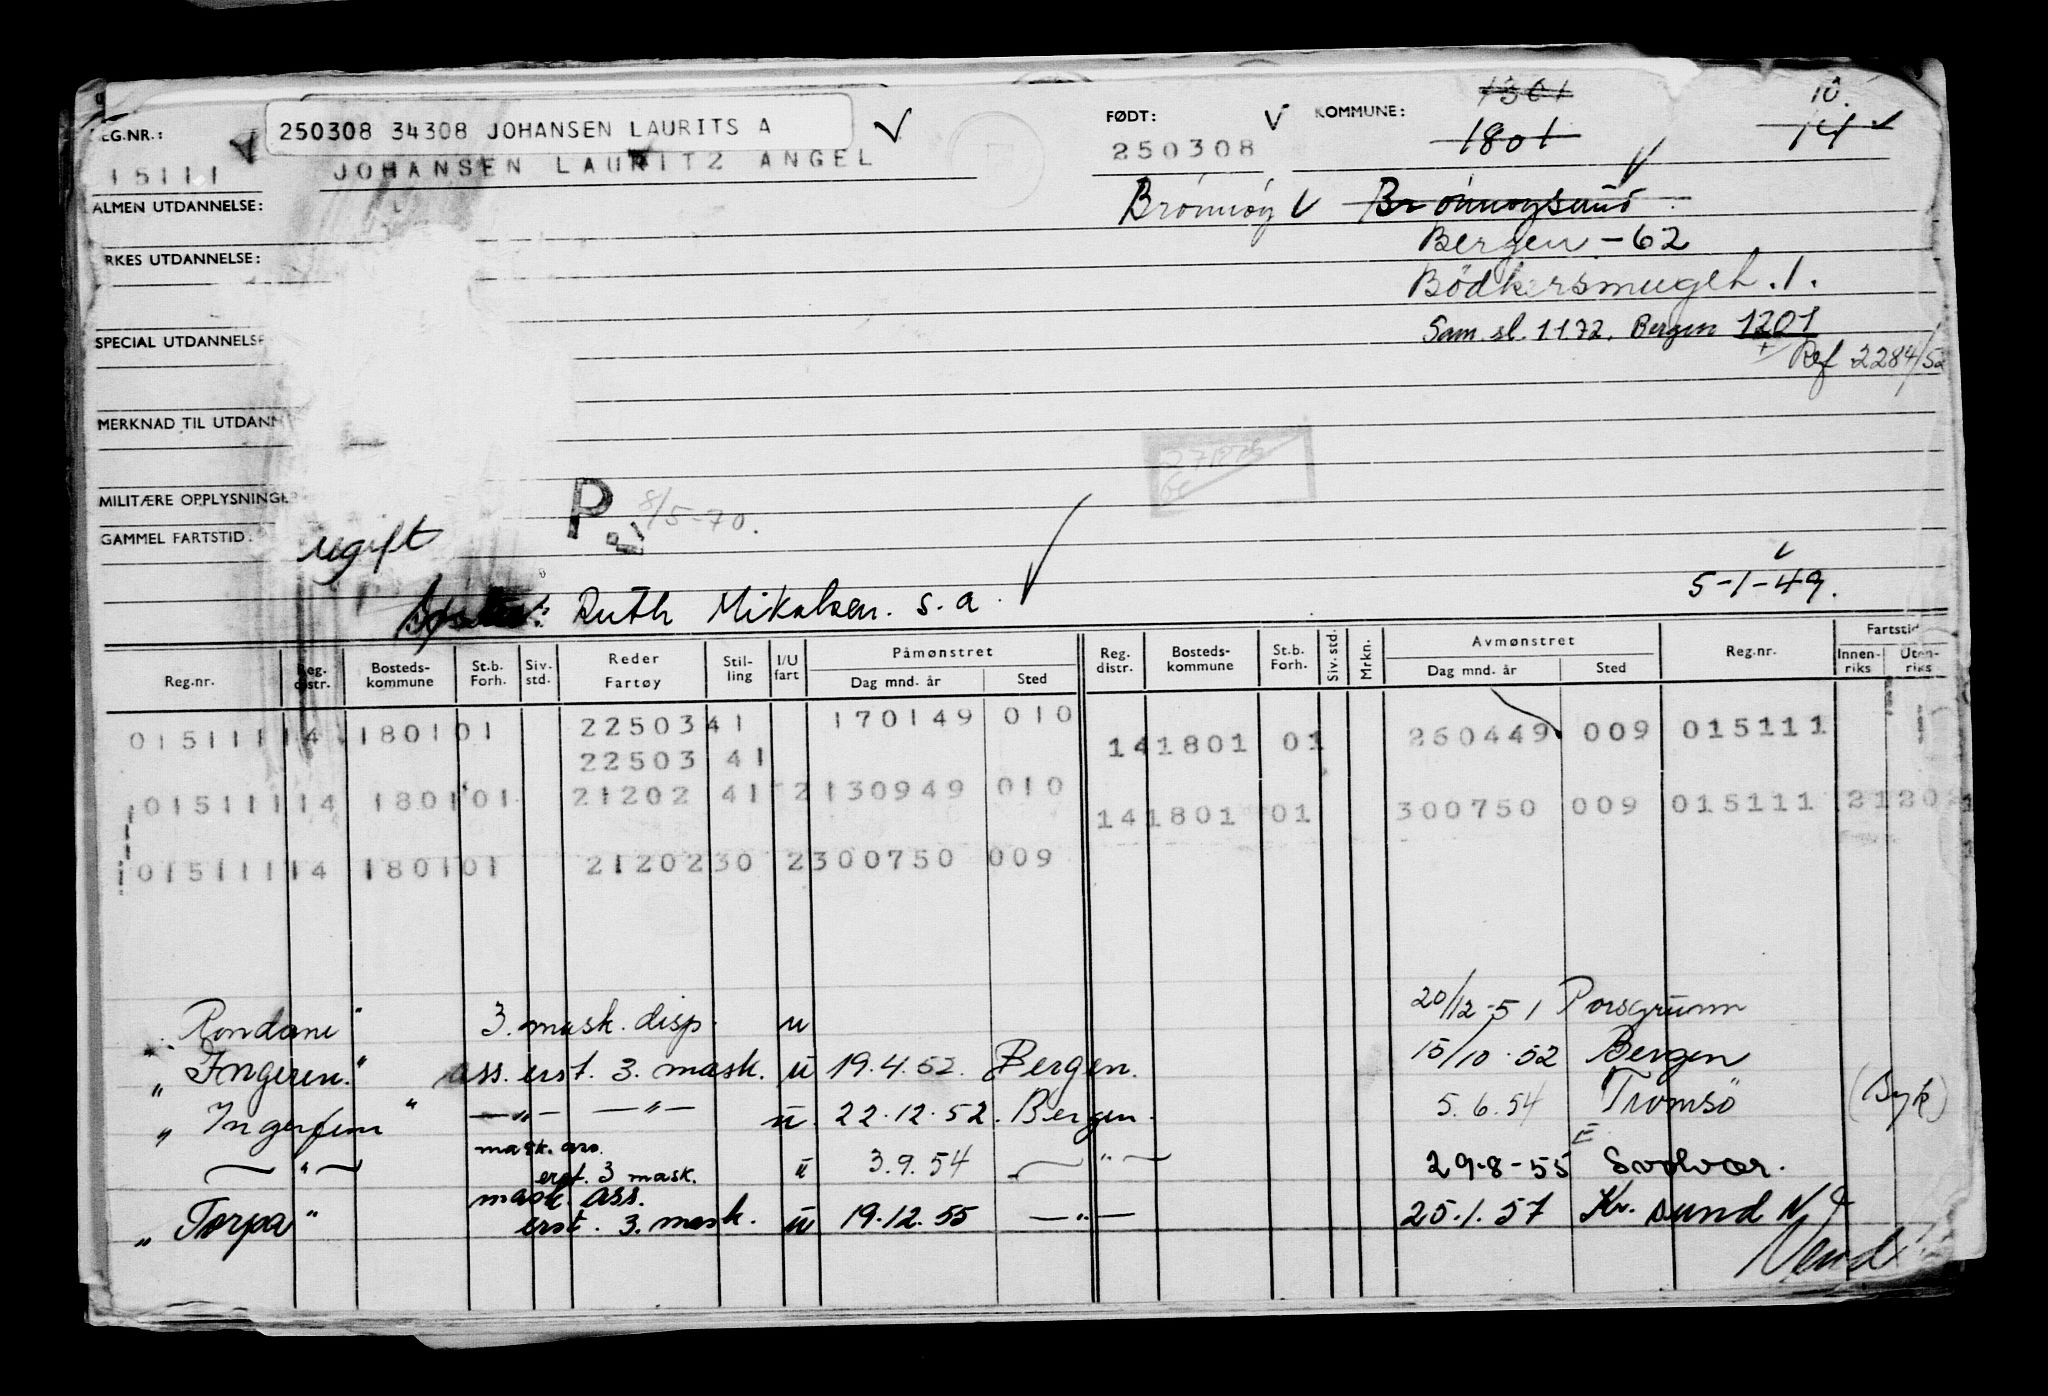 250308 34308 JOHANSEN LAURITS A
FØDT: KOMMUNE: 1301 10.
EG.NR.: 15111 JOHANSEN LAURITZ ANGEL 250308 1801 14
ALMEN UTDANNELSE: Brönnöy Brönnöysund
RKES UTDANNELSE: Bergen - 62
Bödkersmuget. 1.
SPECIAL UTDANNELSE Sam. sl. 1172. Bergen 1201
Ref 2284/52
MERKNAD TIL UTDANN
MILITÆRE OPPLYSNINGER P 8/5-70.
GAMMEL FARTSTID. ugift
Ruth Mikalsen. s.a. 5-1-49.
Reg.nr. Reg. distr. Bosteds-kommune St.b. Forh. Siv. std. Reder Fartøy Stil-ling I/U fart Påmønstret Dag mnd. år Sted Reg. distr. Bosteds-kommune St.b. Forh. Siv. std. Mrkn. Avmønstret Dag mnd. år Sted Reg.nr. Fartstid Innen-riks Uten-riks
015111 14 1801 01 22503 41 170149 010 14 1801 01 260449 009 015111
22503 41
015111 14 1801 01 21202 41 2 130949 010 14 1801 01 300750 009 015111 21202
015111 14 1801 01 21202 30 2 300750 009
" Rondane " 3. mask. disp. u 20/12-51 Porsgrunn
" Ingeren." ass. erst. 3. mask. u 19.4.52. Bergen. 15/10.52 Bergen
" Ingerfem " — " — — " — u. 22.12.52. Bergen. 5.6.54 Tromsö (Byk)
— " — mask. ass. erst. 3 mask. u 3.9.54 — " — 29-8-55 Svolvær.
" Torpa " mask. ass. erst. 3. mask. u 19.12.55 — " — 25.1.57 Kr. sund N
Vend